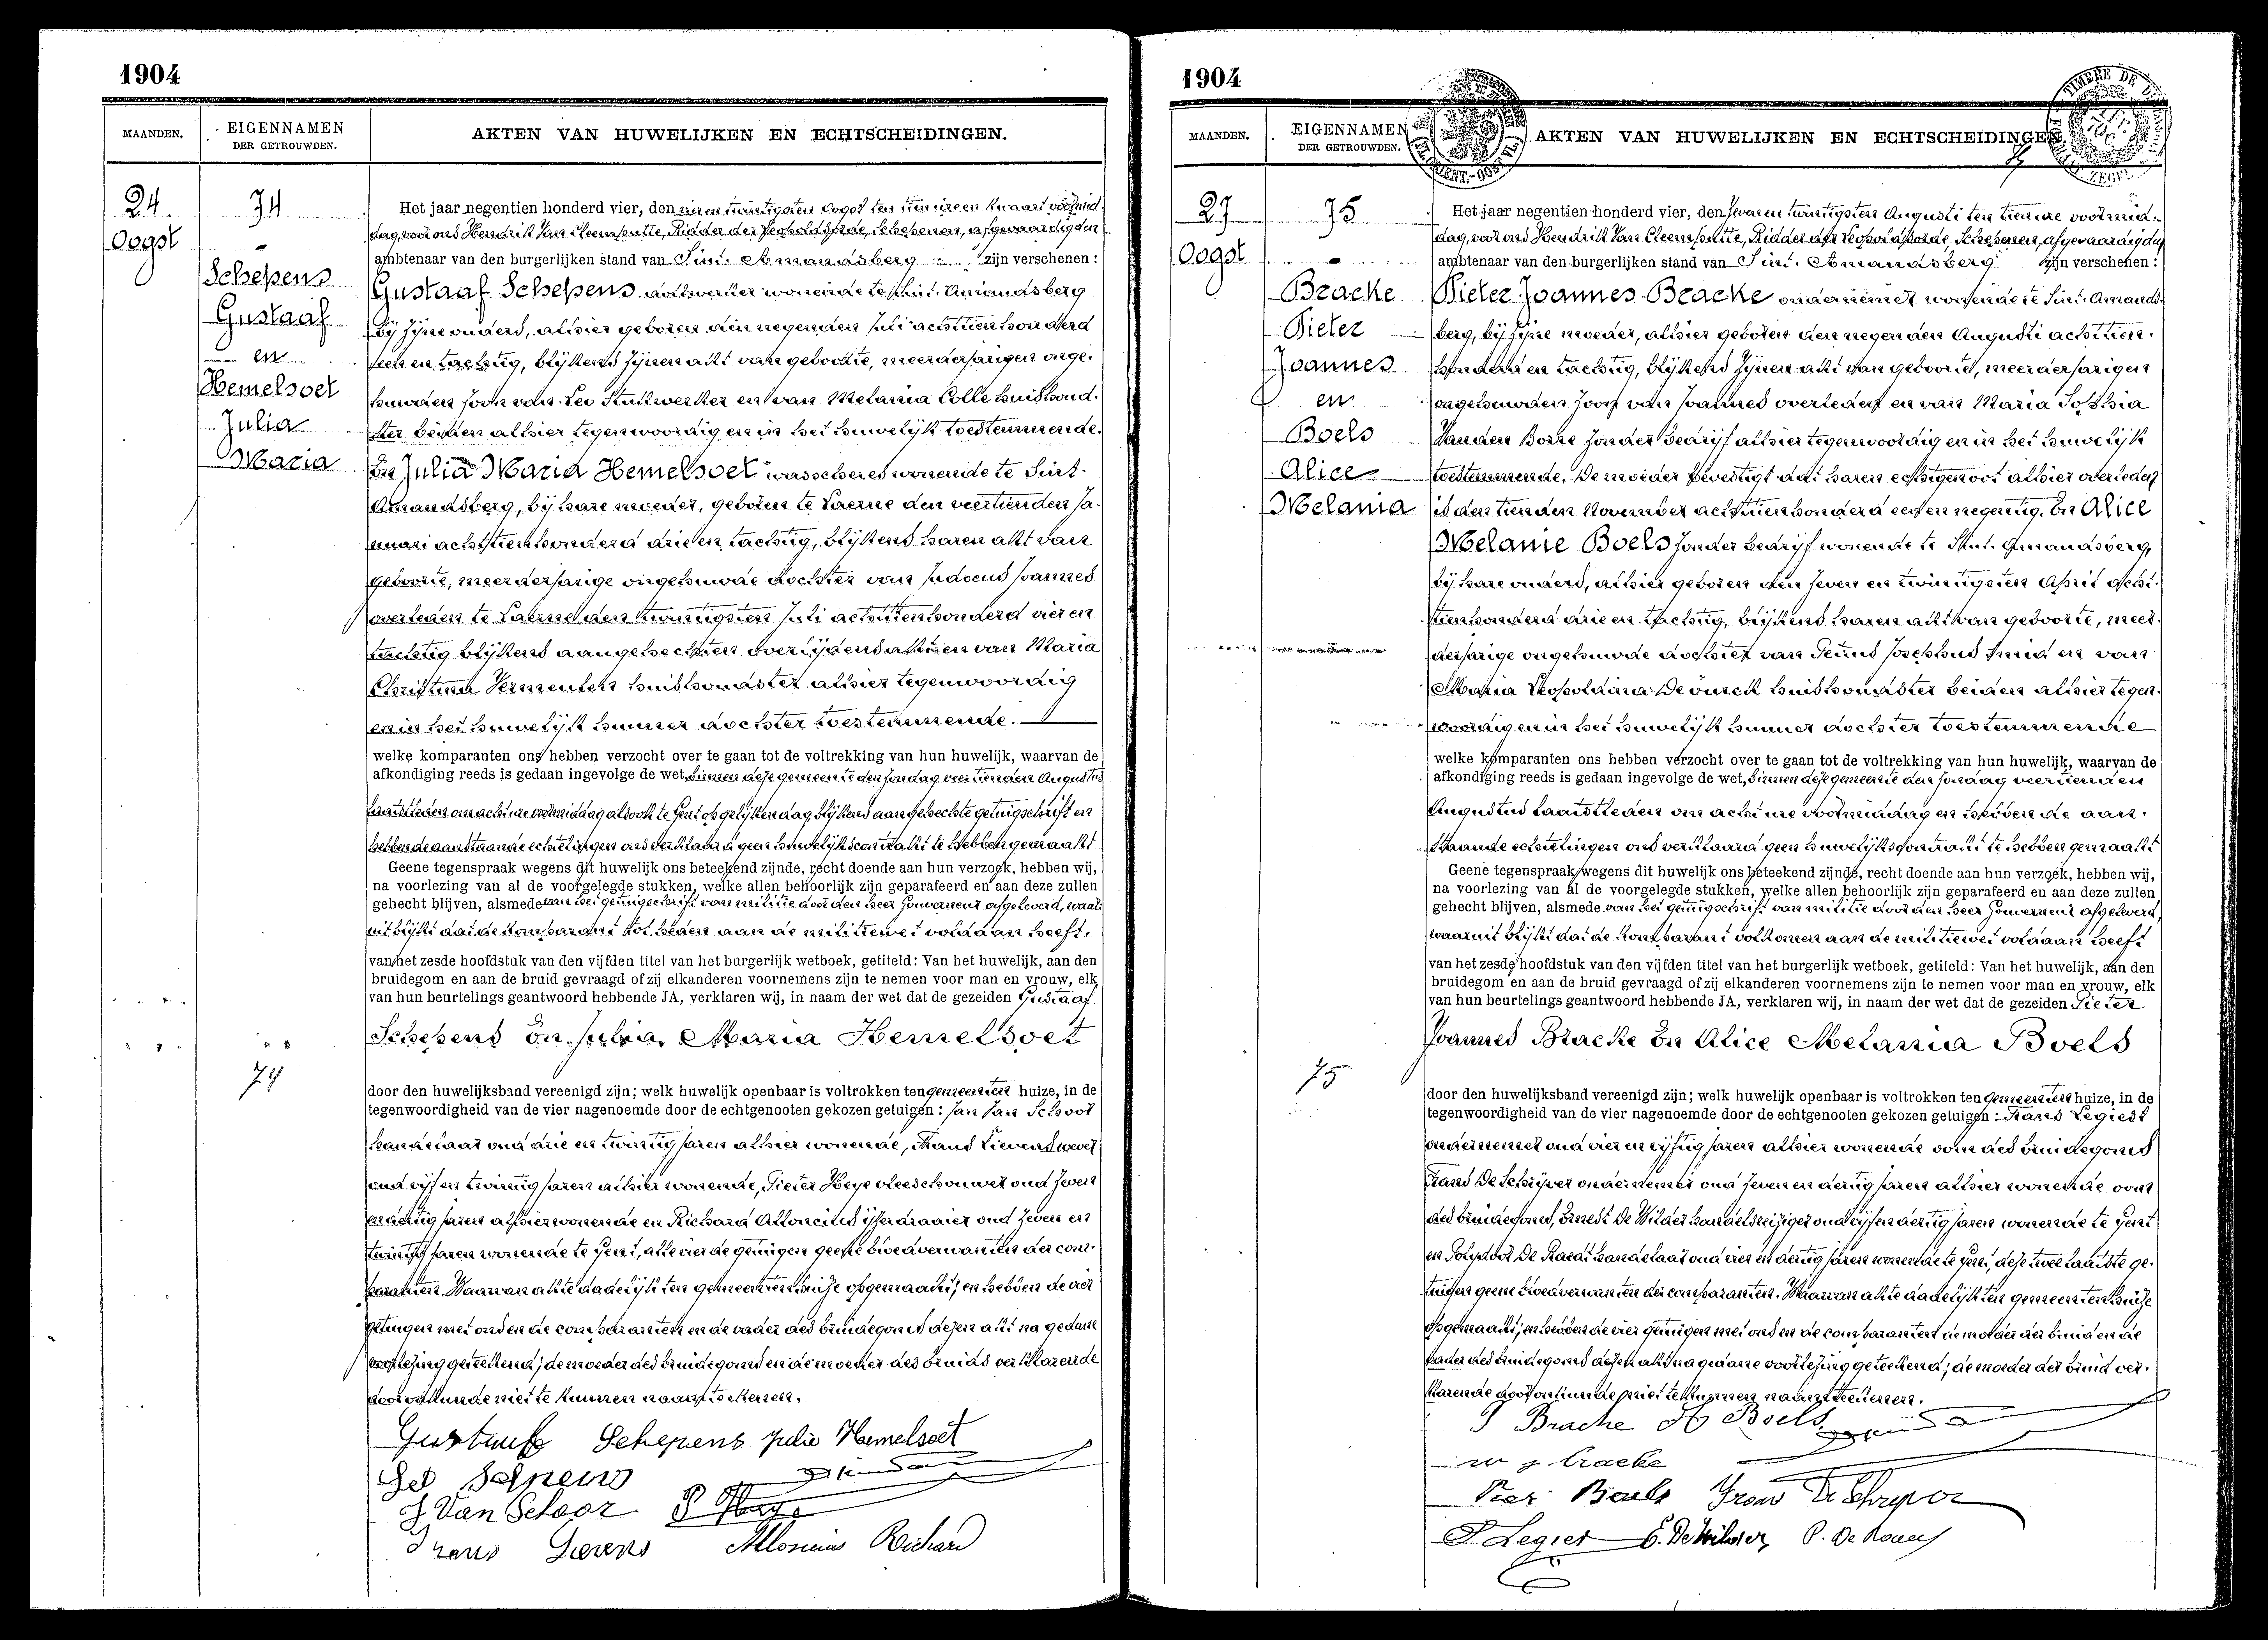 1904
MAANDEN.
EIGENNAMEN
DER GETROUWDEN.
AKTEN VAN HUWELIJKEN EN ECHTSCHEIDINGEN.
24
Oogst
74
Schepens
Gustaaf
en
Hemelsoet
Julia
Maria
Het jaar negentien honderd vier, den vier en twintigsten Oogst ten tien ure en kwaart voormid-
dag, voor ons Hendrik Van Cleemputte, Ridder der Leopoldsorde, Schepenen, afgevaardigden
ambtenaar van den burgerlijken stand van Sint-Amandsberg zijn verschenen:
Gustaaf Schepens wonende te Sint-Amandsberg
bij zijne ouders, alhier geboren den negenden Juli achttien honderd
een en tachtig, blijkens zijnen akt van geboorte, meerderjarigen onge-
huwden zoon van Leo stukwerker en van Melania Colle huishoud-
ster beiden alhier tegenwoordig en in het huwelijk toestemmende.
En Julia Maria Hemelsoet wasscheres wonende te Sint-
Amandsberg, bij hare moeder, geboren te Laerne den veertienden Ja-
nuari achttienhonderd drie en tachtig, blijkens haren akt van
geboorte, meerderjarige ongehuwde dochter van Judocus Joannes
overleden te Laerne den twintigsten Juli achttienhonderd vier en
tachtig blijkens aangehechten overlijdensakt en van Maria
Christina Vermeulen huishoudster alhier tegenwoordig
en in het huwelijk hunner dochter toestemmende.
welke komparanten ons hebben verzocht over te gaan tot de voltrekking van hun huwelijk, waarvan de
afkondiging reeds is gedaan ingevolge de wet, binnen deze gemeente den zondag veertienden Augustus
laatstleden om acht ure voormiddag alsook te Gent op gelijken dag, blijkens aangehechte getuigschrift en
hebben de aanstaande echtelingen ons verklaard geen huwelijkscontrakt te hebben gemaakt
Geene tegenspraak wegens dit huwelijk ons beteekend zijnde, recht doende aan hun verzoek, hebben wij,
na voorlezing van al de voorgelegde stukken, welke allen behoorlijk zijn geparafeerd en aan deze zullen
gehecht blijven, alsmede van het getuigschrift van militie door den heer Gouverneur afgeleverd, waar-
uit blijkt dat de komparant tot heden aan de militiewet voldaan heeft.
van het zesde hoofdstuk van den vijfden titel van het burgerlijk wetboek, getiteld: Van het huwelijk, aan den
bruidegom en aan de bruid gevraagd of zij elkanderen voornemens zijn te nemen voor man en vrouw, elk
van hun beurtelings geantwoord hebbende JA, verklaren wij, in naam der wet dat de gezeiden Gustaaf
Schepens En Julia Maria Hemelsoet
74
door den huwelijksband vereenigd zijn; welk huwelijk openbaar is voltrokken ten gemeenten huize, in de
tegenwoordigheid van de vier nagenoemde door de echtgenooten gekozen getuigen: Jan Van Schoor
handelaar oud drie en twintig jaren alhier wonende, Frans Lievens wever
oud vijf en twintig jaren alhier wonende, Pieter Heye vleeschouwer oud zeven
en dertig jaren alhier wonende en Richard Alloncius ijzerdraaier oud zeven en
twintig jaren wonende te Gent, alle vier de getuigen geene bloedverwanten der com-
paranten. Waarvan akte dadelijk ten gemeentenhuize opgemaakt; en hebben de vier
getuigen met ons en de comparanten en de vader des bruidegoms dezen akt na gedane
voorlezing geteekend; de moeder des bruidegoms en de moeder des bruids verklarende
door onkunde niet te kunnen naamteekenen.
Gustaaf Schepens Julie Hemelsoet
J Van Schoor P Heye
Frans Lievens Alloncius Richard
1904
MAANDEN.
EIGENNAMEN
DER GETROUWDEN.
AKTEN VAN HUWELIJKEN EN ECHTSCHEIDINGEN
27
Oogst
75
Bracke
Pieter
Joannes
en
Boels
Alice
Melania
Het jaar negentien honderd vier, den zeven en twintigsten Augusti ten tien ure voormid-
dag, voor ons Hendrik Van Cleemputte, Ridder der Leopoldsorde, Schepenen, afgevaardigden
ambtenaar van den burgerlijken stand van Sint-Amandsberg zijn verschenen:
Pieter Joannes Bracke ondernemer wonende te Sint-Amands-
berg, bij zijne moeder, alhier geboren den negenden Augusti achttien-
honderd en tachtig, blijkens zijnen akt van geboorte, meerderjarigen
ongehuwden zoon van Joannes overleden en van Maria Sophia
Van den Borre zonder bedrijf alhier tegenwoordig en in het huwelijk
toestemmende. De moeder bevestigt dat haren echtgenoot alhier overleden
is den tienden November achttienhonderd een en negentig. En Alice
Melanie Boels zonder bedrijf wonende te Sint-Amandsberg,
bij hare ouders, alhier geboren den zeven en twintigsten April acht-
tienhonderd drie en tachtig, blijkens haren akt van geboorte, meer-
derjarige ongehuwde dochter van Petrus Josephus smid en van
Maria Leopoldina De Buck huishoudster beiden alhier tegen-
woordig en in het huwelijk hunner dochter toestemmende
welke komparanten ons hebben verzocht over te gaan tot de voltrekking van hun huwelijk, waarvan de
afkondiging reeds is gedaan ingevolge de wet, binnen deze gemeente den zondag veertienden
Augustus laatstleden om acht ure voormiddag en hebben de aan-
staande echtelingen ons verklaard geen huwelijkscontrakt te hebben gemaakt
Geene tegenspraak wegens dit huwelijk ons beteekend zijnde, recht doende aan hun verzoek, hebben wij,
na voorlezing van al de voorgelegde stukken, welke allen behoorlijk zijn geparafeerd en aan deze zullen
gehecht blijven, alsmede van het getuigschrift van militie door den heer Gouverneur afgeleverd,
waaruit blijkt dat de komparant volkomen aan de militiewet voldaan heeft
van het zesde hoofdstuk van den vijfden titel van het burgerlijk wetboek, getiteld: Van het huwelijk, aan den
bruidegom en aan de bruid gevraagd of zij elkanderen voornemens zijn te nemen voor man en vrouw, elk
van hun beurtelings geantwoord hebbende JA, verklaren wij, in naam der wet dat de gezeiden Pieter
Joannes Bracke En Alice Melania Boels
75
door den huwelijksband vereenigd zijn; welk huwelijk openbaar is voltrokken ten gemeenten huize, in de
tegenwoordigheid van de vier nagenoemde door de echtgenooten gekozen getuigen: Frans Legiest
ondernemer oud vier en vijftig jaren alhier wonende oom des bruidegoms
Frans De Schrijver ondernemer oud zeven en dertig jaren alhier wonende oom
des bruidegoms, Ernest De Wilder handelsreiziger oud vijf en dertig jaren wonende te Gent
en Polydoor De Raedt handelaar oud vier en dertig jaren wonende te Gent, deze twee laatste ge-
tuigen geene bloedverwanten der comparanten. Waarvan akte dadelijk ten gemeentenhuize
opgemaakt; en hebben de vier getuigen met ons en de comparanten de moeder der bruid en de
vader des bruidegoms dezen akt na gedane voorlezing geteekend; de moeder der bruid ver-
klarende door onkunde niet te kunnen naamteekenen.
P Bracke A Boels
Boels Frans De Schryver
F. Legiest E. De Wilder P. De